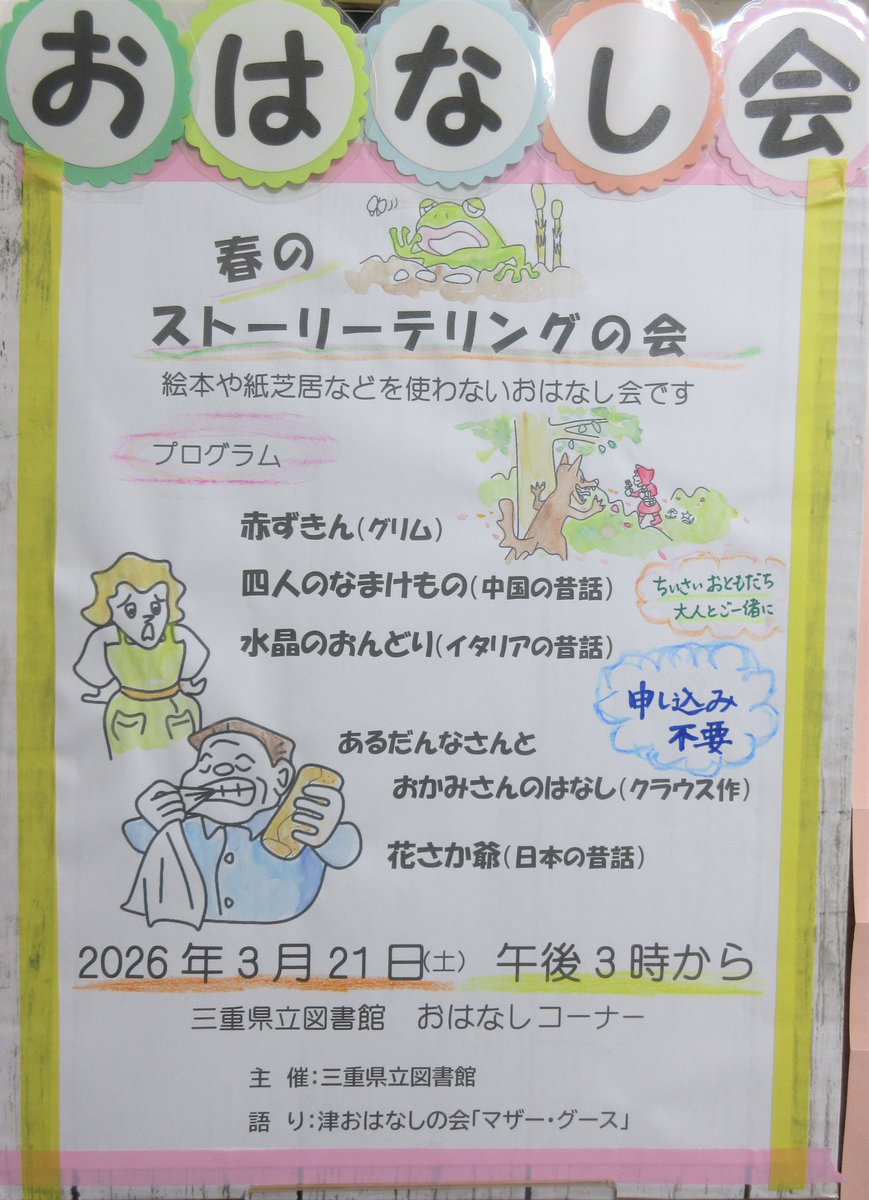 おはなし会
春の
ストーリーテリングの会
絵本や紙芝居などを使わないおはなし会です
プログラム
赤ずきん(グリム)
四人のなまけもの(中国の昔話)
ちいさいおともだち
大人とご一緒に
水晶のおんどり(イタリアの昔話)
申し込み
不要
あるだんなさんと
おかみさんのはなし(クラウス作)
花さか爺(日本の昔話)
2026年3月21日(土) 午後3時から
三重県立図書館 おはなしコーナー
主 催:三重県立図書館
語 り:津おはなしの会「マザー・グース」